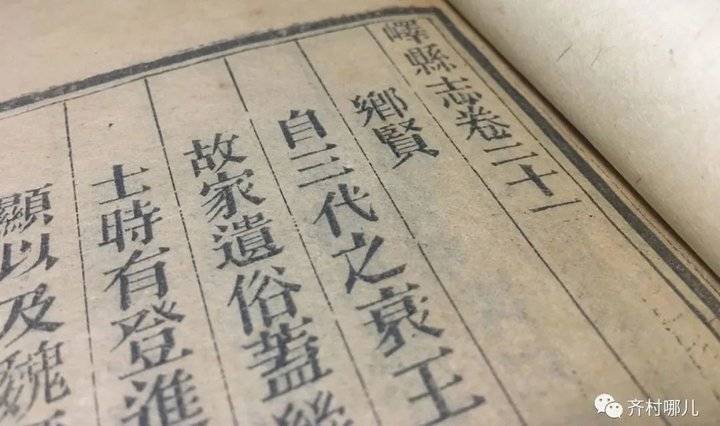 嶧縣志卷二十一
鄉賢
自三代之衰王
故家遺俗蓋
士時有登進
顯以及魏
齐村哪儿